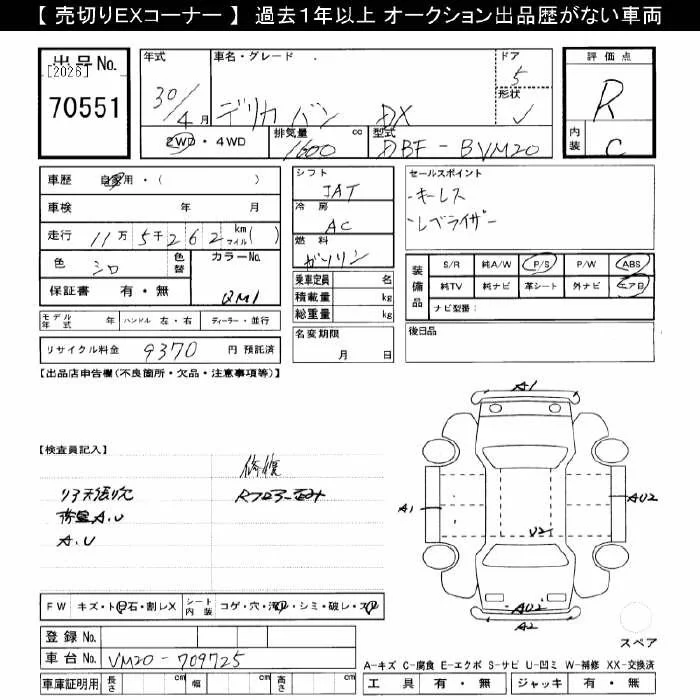 【 売切りEXコーナー 】 過去1年以上 オークション出品歴がない車両
出品No.
[2026]
70551
年式
30/4月
車名・グレード
デリカ バン DX
ドア
5
形状
2WD・4WD
排気量 1600 cc
型式 DBF-BVM20
評価点
R
内装
C
車歴 自家用・( )
車検 年 月
走行 11万5千262 km マイル( )
色 シロ 色替 カラーNo.
QM1
保証書 有・無
モデル年式 年 ハンドル 左・右 ディーラー・並行
リサイクル料金 9370 円 預託済
シフト
IAT
冷房
AC
燃料
ガソリン
乗車定員 名
積載量 kg
総重量 kg
名変期限
月 日
セールスポイント
・キーレス
・レベライザー
装備品
S/R 純A/W P/S P/W ABS
純TV 純ナビ 革シート 外ナビ エアB
ナビ型番:
後日品
【出品店申告欄(不良箇所・欠品・注意事項等)】
【検査員記入】
修復
A.U
A.U
A1
A1
AU2
U2
AU2
A2
スペア
FW キズ・ト石・割レX シート内装 コゲ・穴・汚レ・シミ・破レ・スレ
登録No.
車台No. VM20-709725
車庫証明用 長さ cm 幅 cm 高さ cm
A-キズ C-腐食 E-エクボ S-サビ U-凹ミ W-補修 XX-交換済
工具 有・無 ジャッキ 有・無